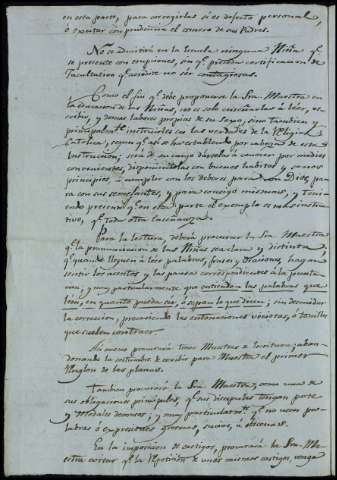 en esta parte, para corregirlas si es defecto personal,
ó excitar con prudencia el esmero de sus Padres.
No se admitirá en la Escuela ninguna Niña qe
se presente con erupciones, sin qe presente certificacion de
Facultativo qe acredite no ser contagiosas.
Como el fin qe debe proponerse la Sra. Maestra en
la educacion de las Niñas, no es solo enseñarlas á leer, es-
cribir, y demas labores propias de su sexo, sino tambien y
principalmte. instruirlas en las verdades de la Religion
Catolica, segun qe asi se ha establecido por cabeza de esta
Instruccion; será de su cargo disponerlas con buenos habitos y
principios, á cumplir con los deberes para con Dios, pa-
ra con sus semejantes, y para consigo mismas, y tenien-
do presente qe en esta parte el exemplo es mas instruc-
tivo, qe toda otra enseñanza.
Para la lectura, deberá procurar la Sra. Maestra
qe la pronunciacion de las Niñas sea clara y distinta,
qe quando lleguen á leer palabras, frases y Oraciones, hagan
sentir los acentos y las pausas correspondientes á la puntua-
cion; y muy particularmente que entiendan las palabras que
leen, en quanto pueda ser, ó sepan lo que dicen; sin descuidar
la correccion, precaviendo las entonaciones viciosas, ó tonillos
que suelen contraer.
Asimismo procurará
donando la costumbre de escribir para Muestra el primer
Renglon de las planas.
Tambien procurará la Sra. Maestra, como una de
sus obligaciones principales, qe sus discipulas tengan porte
y modales decorosos; y muy particularmte. qe no usen pa-
labras ó expresiones groseras, sucias, ú obscenas.
En la imposicion de castigos, procurará la Sra. Ma-
estra evitar qe la repeticion de unos mismos castigos, venga